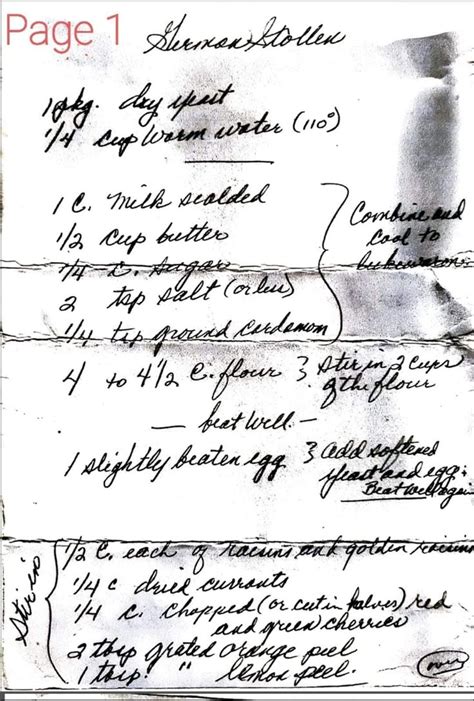 Page 1
German Stollen
1 pkg. dry yeast
1/4 cup warm water (110°)
1 C. Milk scalded
1/2 cup butter
1/4 c. sugar
2 tsp salt (or less)
1/4 tsp ground cardamom
Combine and
cool to
lukewarm.
4 to 4 1/2 C. flour } Stir in 2 cups
of the flour
— beat well. —
1 slightly beaten egg } add softened
yeast and egg.
Beat well again
Stir in
1/2 C. each of raisins and golden raisins
1/4 c dried currants
1/4 c. chopped (or cut in halves) red
and green cherries
2 tbsp grated orange peel
1 tbsp. " lemon peel.
over